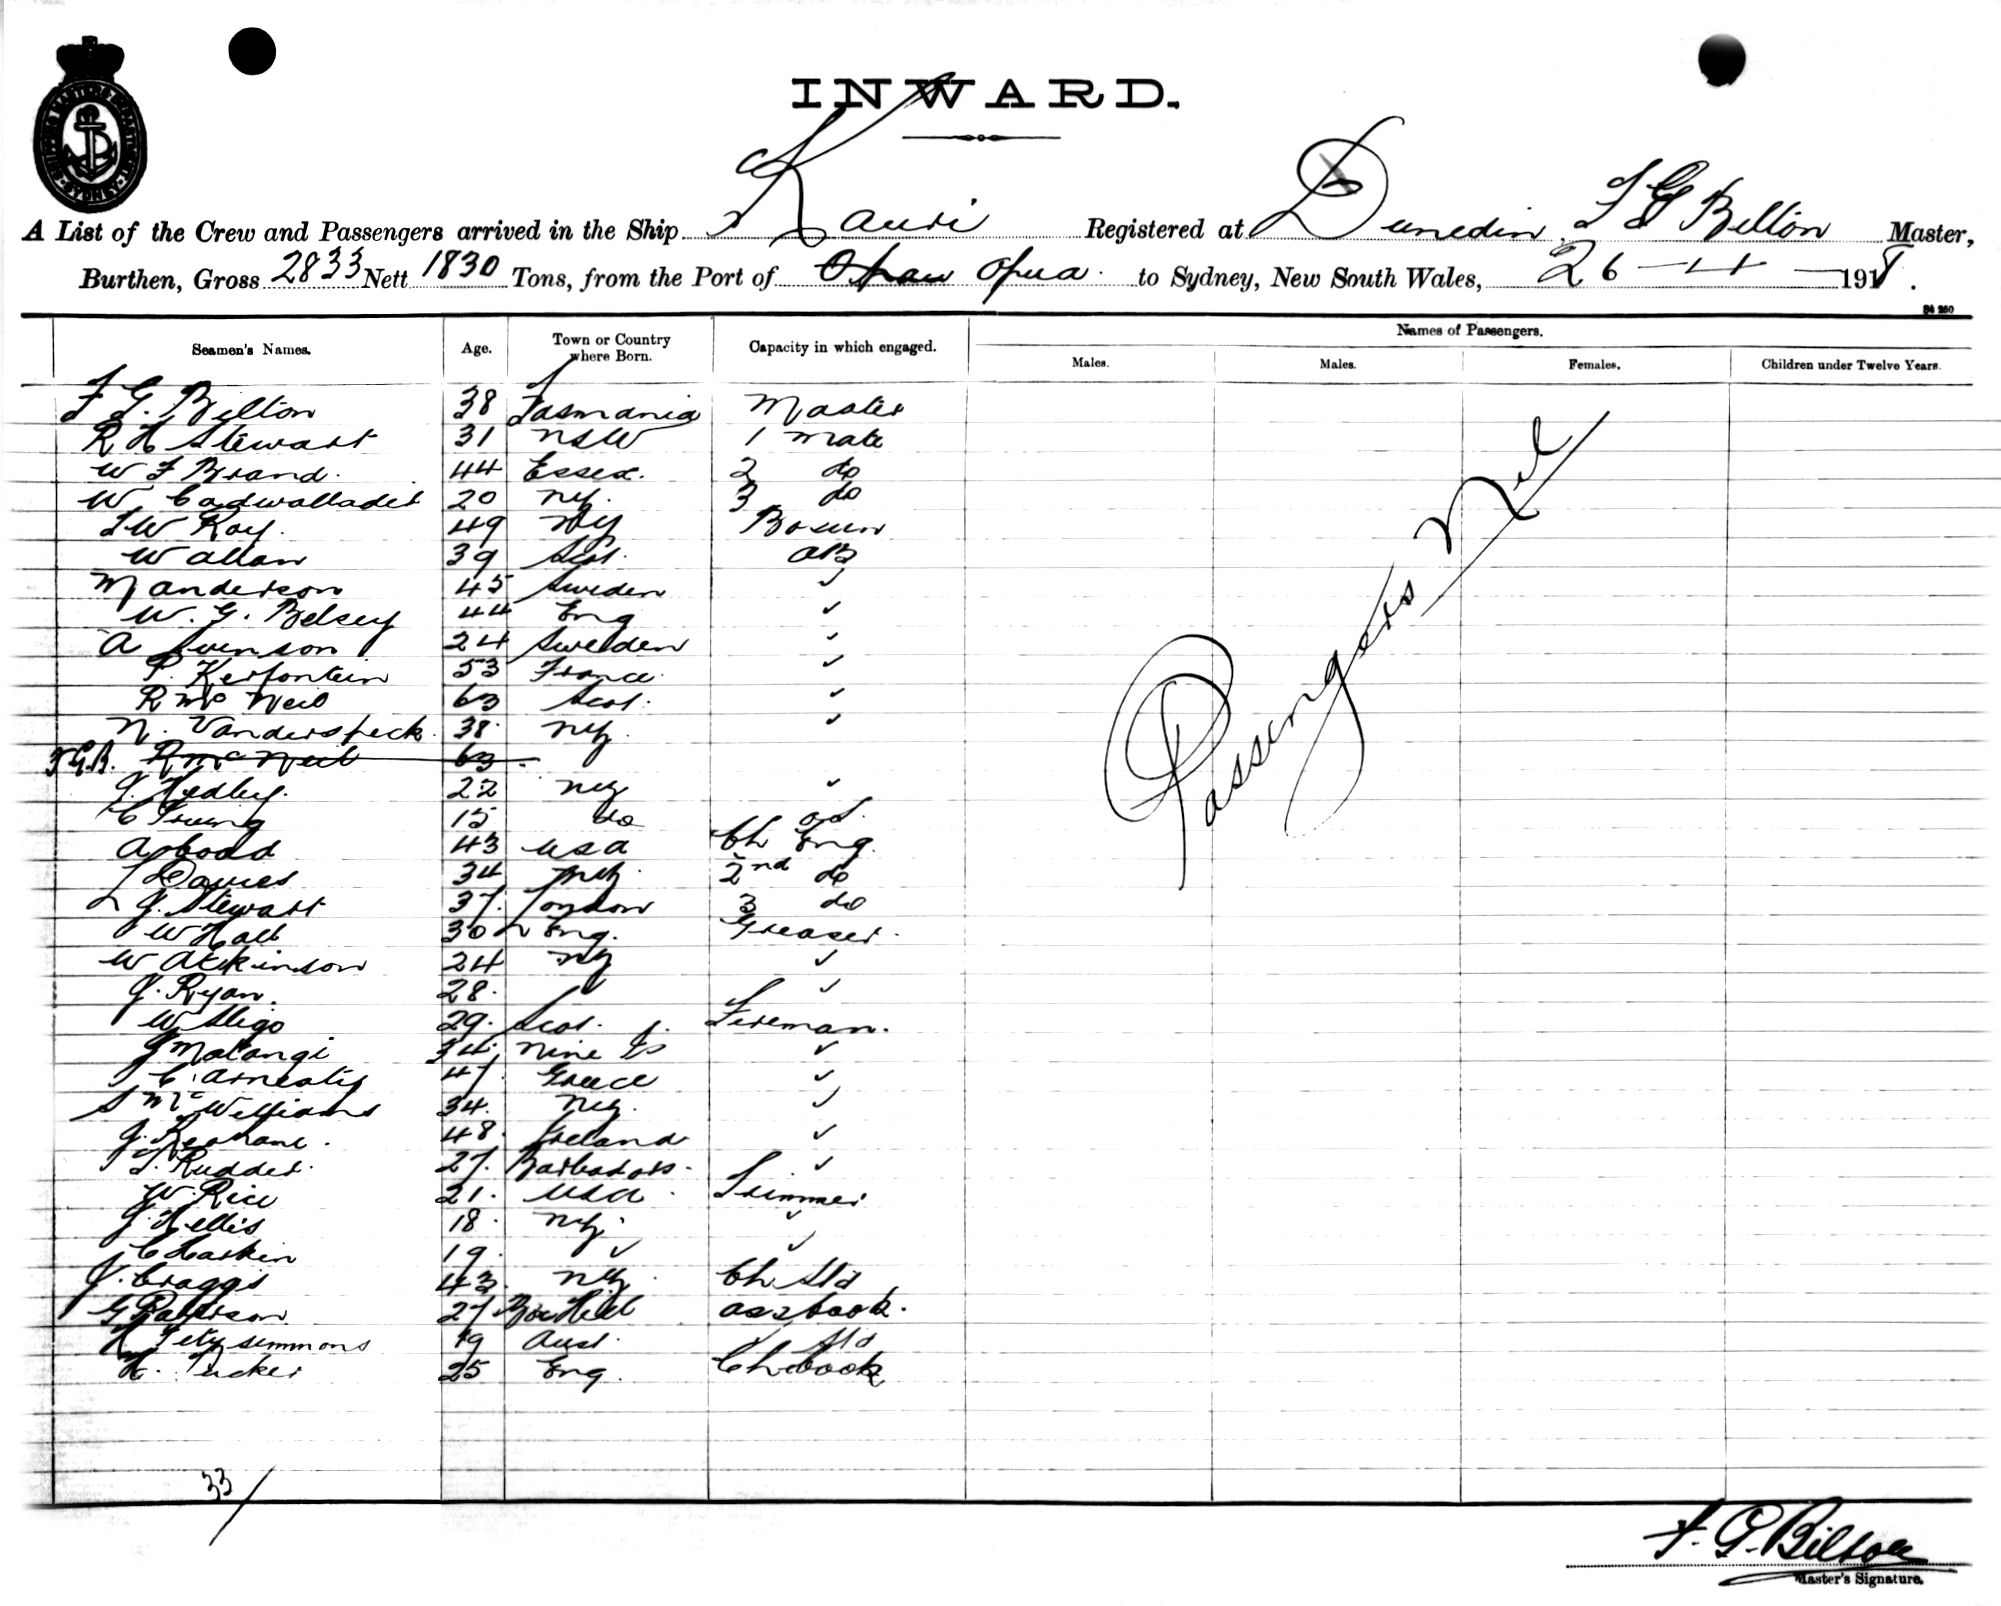 INWARD.
A List of the Crew and Passengers arrived in the Ship Kauri Registered at Dunedin, F G Bilton Master,
Burthen, Gross 2833 Nett 1830 Tons, from the Port of Opua to Sydney, New South Wales, 26 - 11 - 1918.
Seamen's Names. Age. Town or Country where Born. Capacity in which engaged. Names of Passengers.
Males. Males. Females. Children under Twelve Years.
F G. Bilton 38 Tasmania Master
R H Stewart 31 NSW 1 Mate
W F Brand. 44 Essex. 2 do
W. Cadwallader 20 NZ. 3 do
W Roy. 49 NZ Bosun
W Allan 39 Scot. AB
M Anderson 45 Sweden ✓
W. G. Belsey 44 Eng ✓
A Svenson 24 Sweden ✓
P. Kerfontein 53 France. ✓
R Mc Neil 63 Scot. ✓
N. Vanderspeck. 38. NZ. ✓
F.G.B. R Mc Neil 63 -
J. Hedley. 22 NZ ✓
C Irving 15 do OS.
A Coad 43 USA Ch Eng.
Davies 34 NZ. 2nd do
J. Stewart 37. London 3 do
W Hall 30 Eng. Greaser.
W Atkinson 24 NZ ✓
J. Ryan. 28. ✓
W Sligo 29. Scot. Fireman.
J Matangi 34. Nine Is ✓
C. 47. Greece ✓
S McWilliams 34. NZ. ✓
J. Keohane. 48. Ireland ✓
T. Rudder. 27. Barbados. ✓
W. Rice 21. USA. Trimmer
J. Hellis 18. NZ. ✓
C Haskin 19. ✓ ✓
J. Craggs 43. NZ. Ch Std
G Paterson 27. Box Hill ass Cook.
H Fitzsimmons 19 Aust. Std
H. Tucker 25 Eng. Ch Cook
Passengers Nil
33/
F. G. Bilton
Master's Signature.